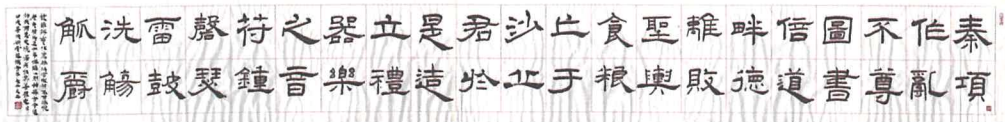 秦項
作亂
不尊
圖書
倍道
畔德
離敗
聖輿
食粮
亡于
沙丘
君於
是造
立禮
器樂
之音
符鍾
磬瑟
雷鼓
洗觴
觚爵